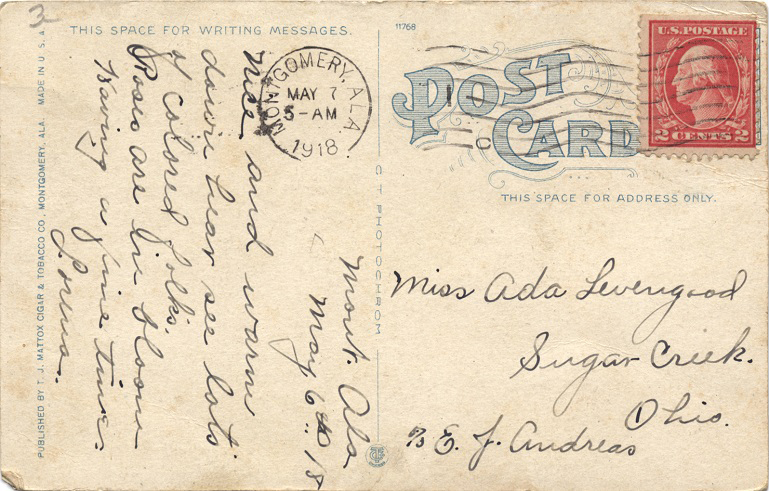 3
THIS SPACE FOR WRITING MESSAGES.
11768
POST
CARD
THIS SPACE FOR ADDRESS ONLY.
U.S. POSTAGE
2 CENTS 2
MONTGOMERY, ALA.
MAY 7
5-AM
1918
Mont. Ala
May 6th 18
Nice and warm
down hear see lots
of Colored folks.
Roses are in bloom
Having a fine time.
Miss Ada Levengood
Sugar Creek.
Ohio.
% E. J. Andreas
C T PHOTOCHROM
PUBLISHED BY T. J. MATTOX CIGAR & TOBACCO CO., MONTGOMERY, ALA. MADE IN U. S. A.